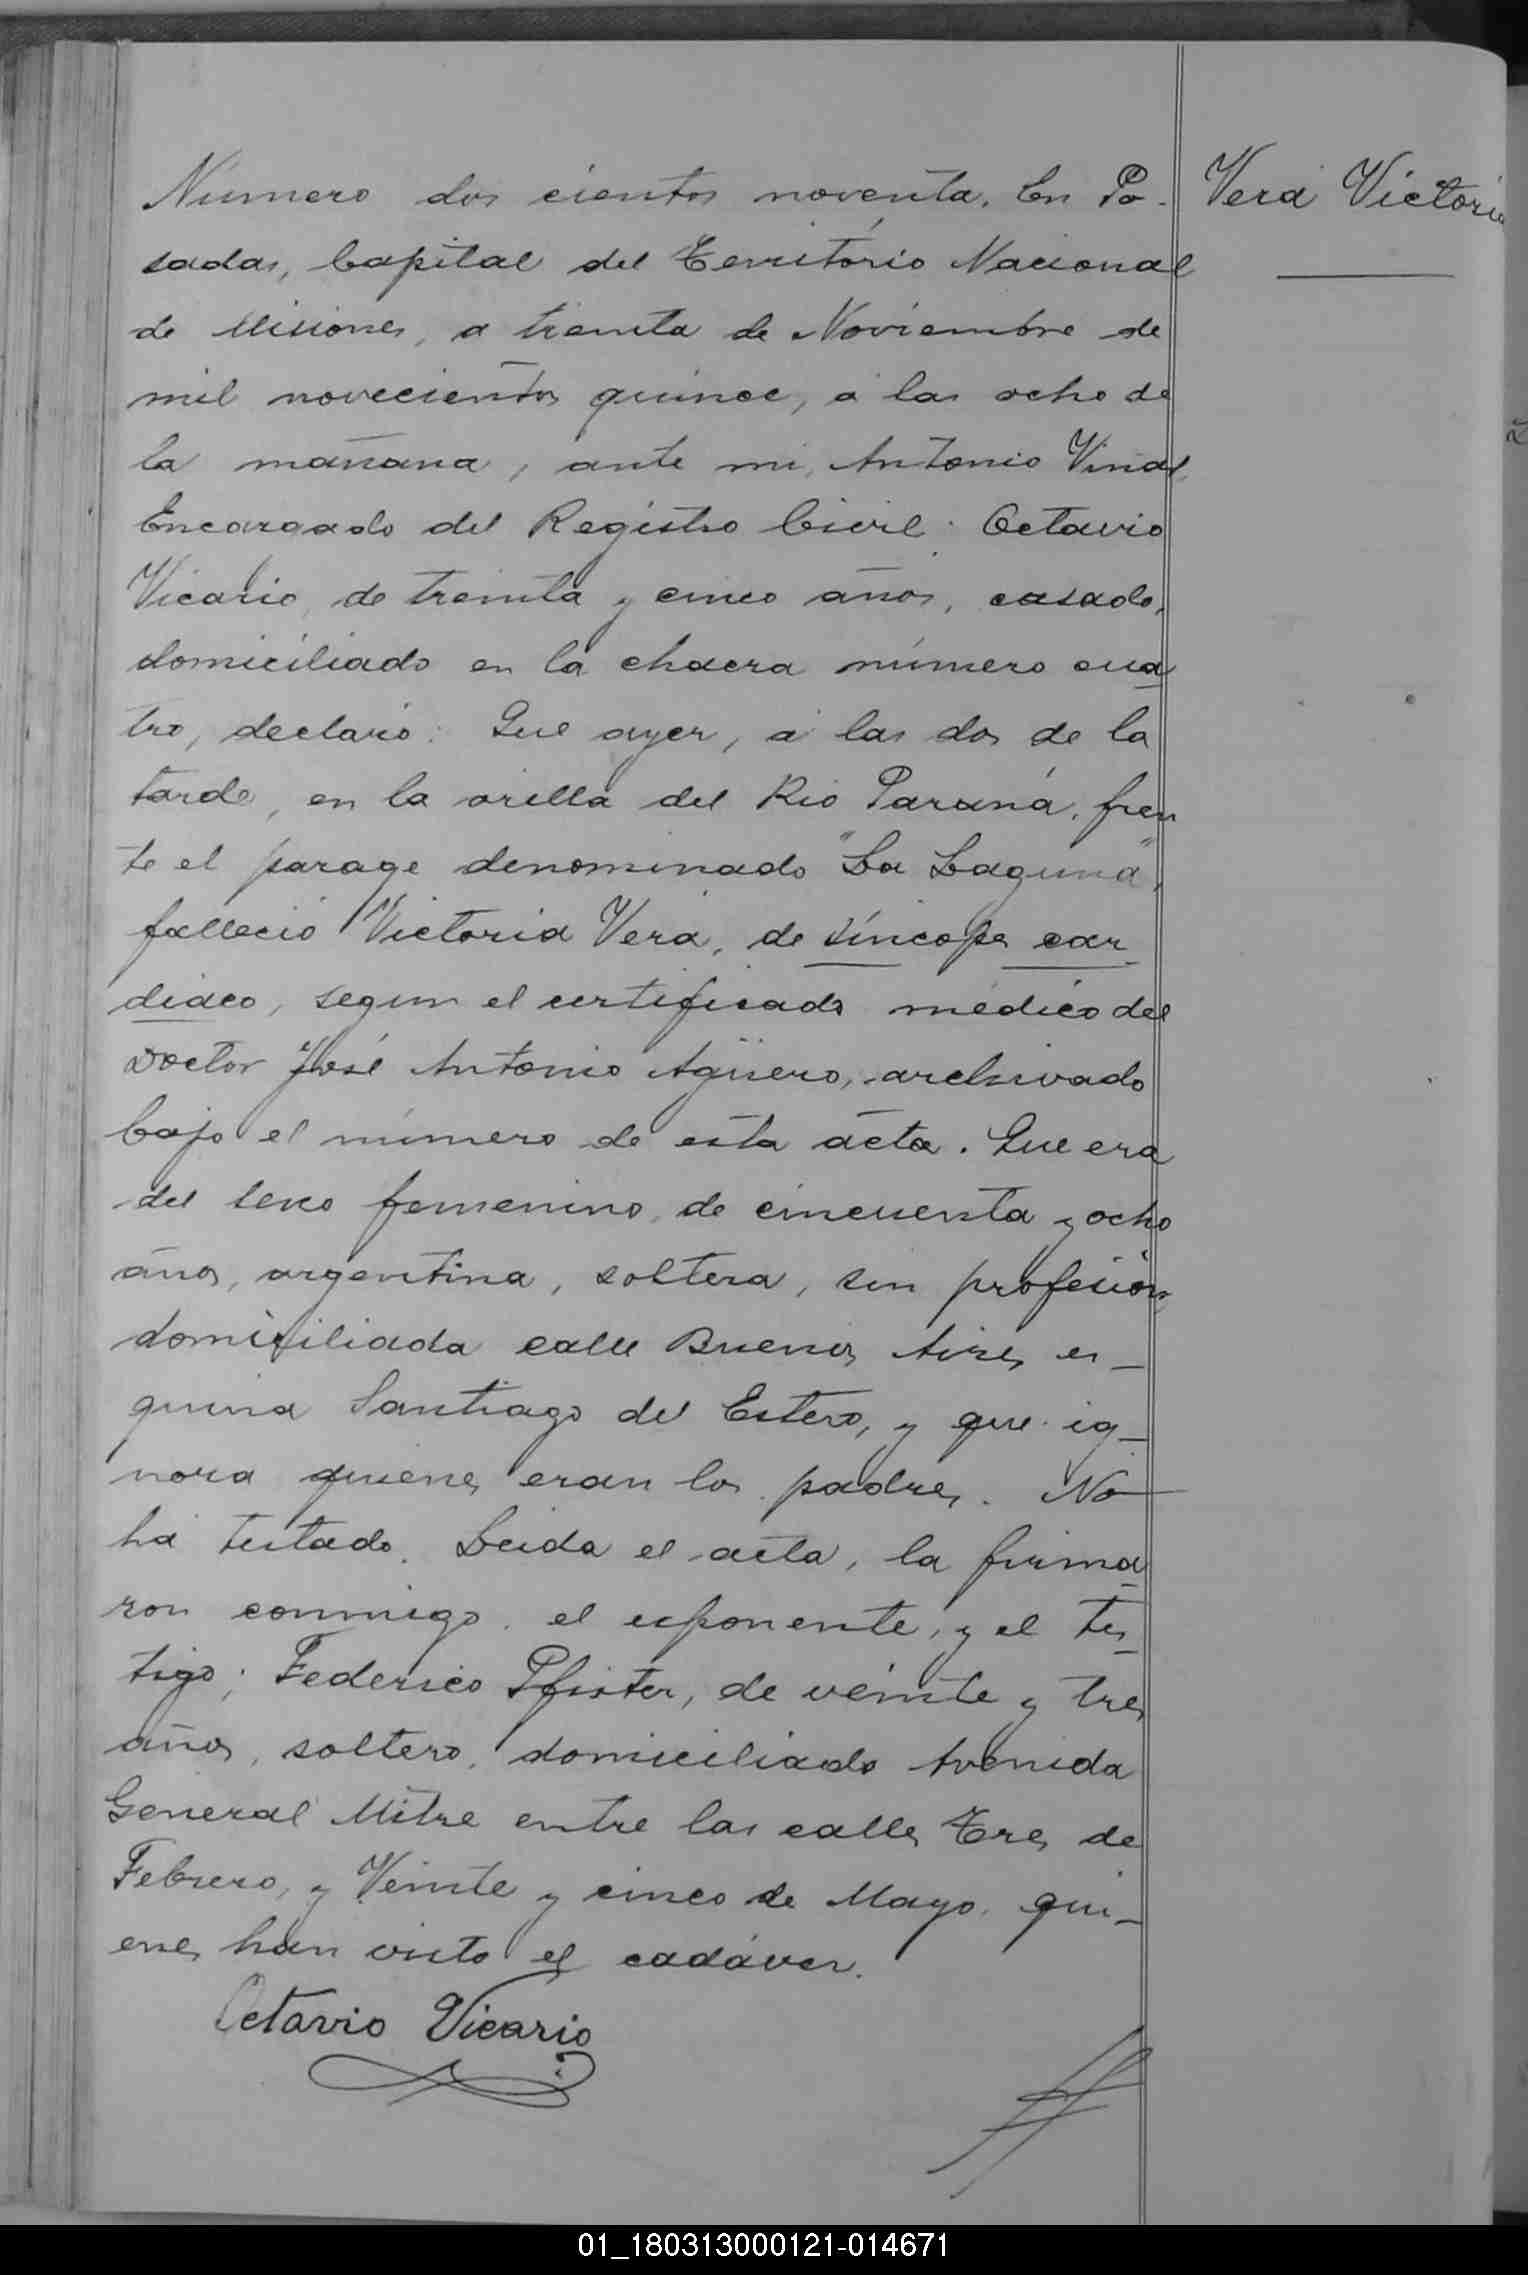 Número dos cientos noventa. En Po-
sadas, Capital del Territorio Nacional
de Misiones, a treinta de Noviembre de
mil novecientos quince, a las ocho de
la mañana, ante mi, Antonio Vinal,
Encargado del Registro Civil: Octavio
Vicario, de treinta y cinco años, casado,
domiciliado en la chacra número cua
tro, declaró: Que ayer, a las dos de la
tarde, en la orilla del Rio Paraná, fren
te el parage denominado "La Laguna",
falleció Victoria Vera, de síncope car
diaco, segun el certificado médico del
Doctor José Antonio Agüero, archivado
bajo el número de esta acta. Que era
del sexo femenino, de cincuenta y ocho
años, argentina, soltera, sin profesión,
domiciliada calle Buenos Aires es-
quina Santiago del Estero, y que ig-
nora quienes eran los padres. No
ha testado. Leida el acta, la firma
ron conmigo, el exponente, y el tes-
tigo; Federico Pfister, de veinte y tres
años, soltero, domiciliado Avenida
General Mitre entre las calles Tres de
Febrero, y Veinte y cinco de Mayo, qui-
enes han visto el cadáver.
Octavio Vicario
Vera Victoria
01_180313000121-014671